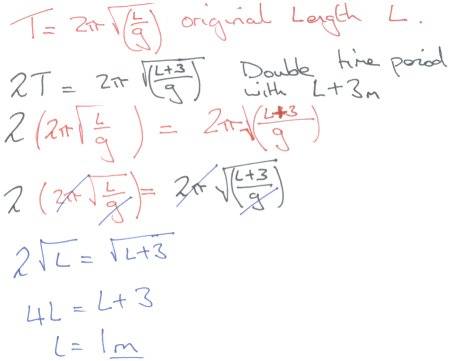 T = 2π√(L/g) original Length L.
2T = 2π√((L+3)/g) Double time period with L+3m
2(2π√(L/g)) = 2π√((L+3)/g)
2(2π√(L/g)) = 2π√((L+3)/g)
2√L = √L+3
4L = L+3
L = 1m